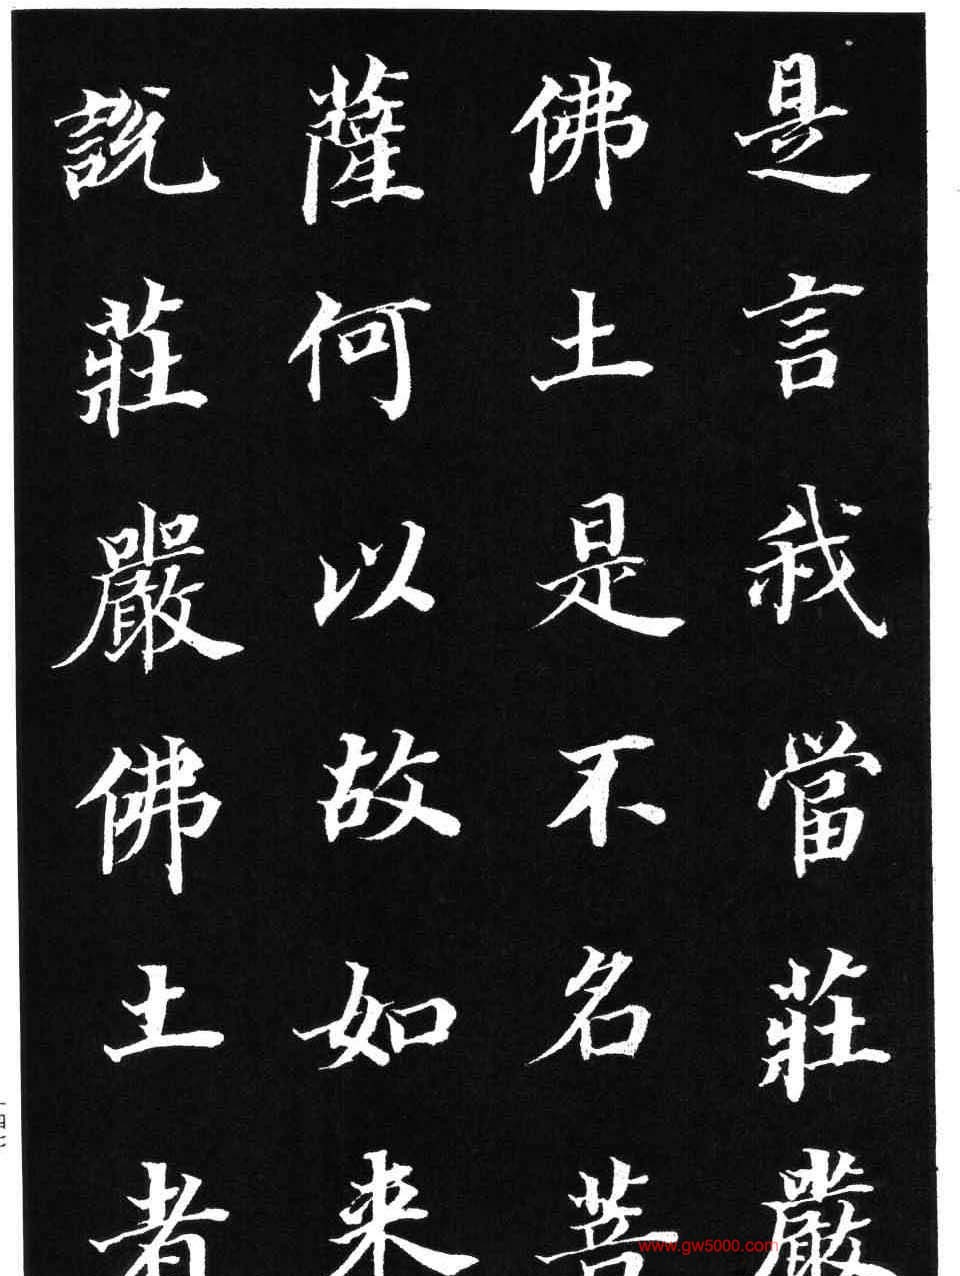 是言我當莊嚴
佛土是不名菩
薩何以故如来
說莊嚴佛土者
一四七
www.gw5000.com